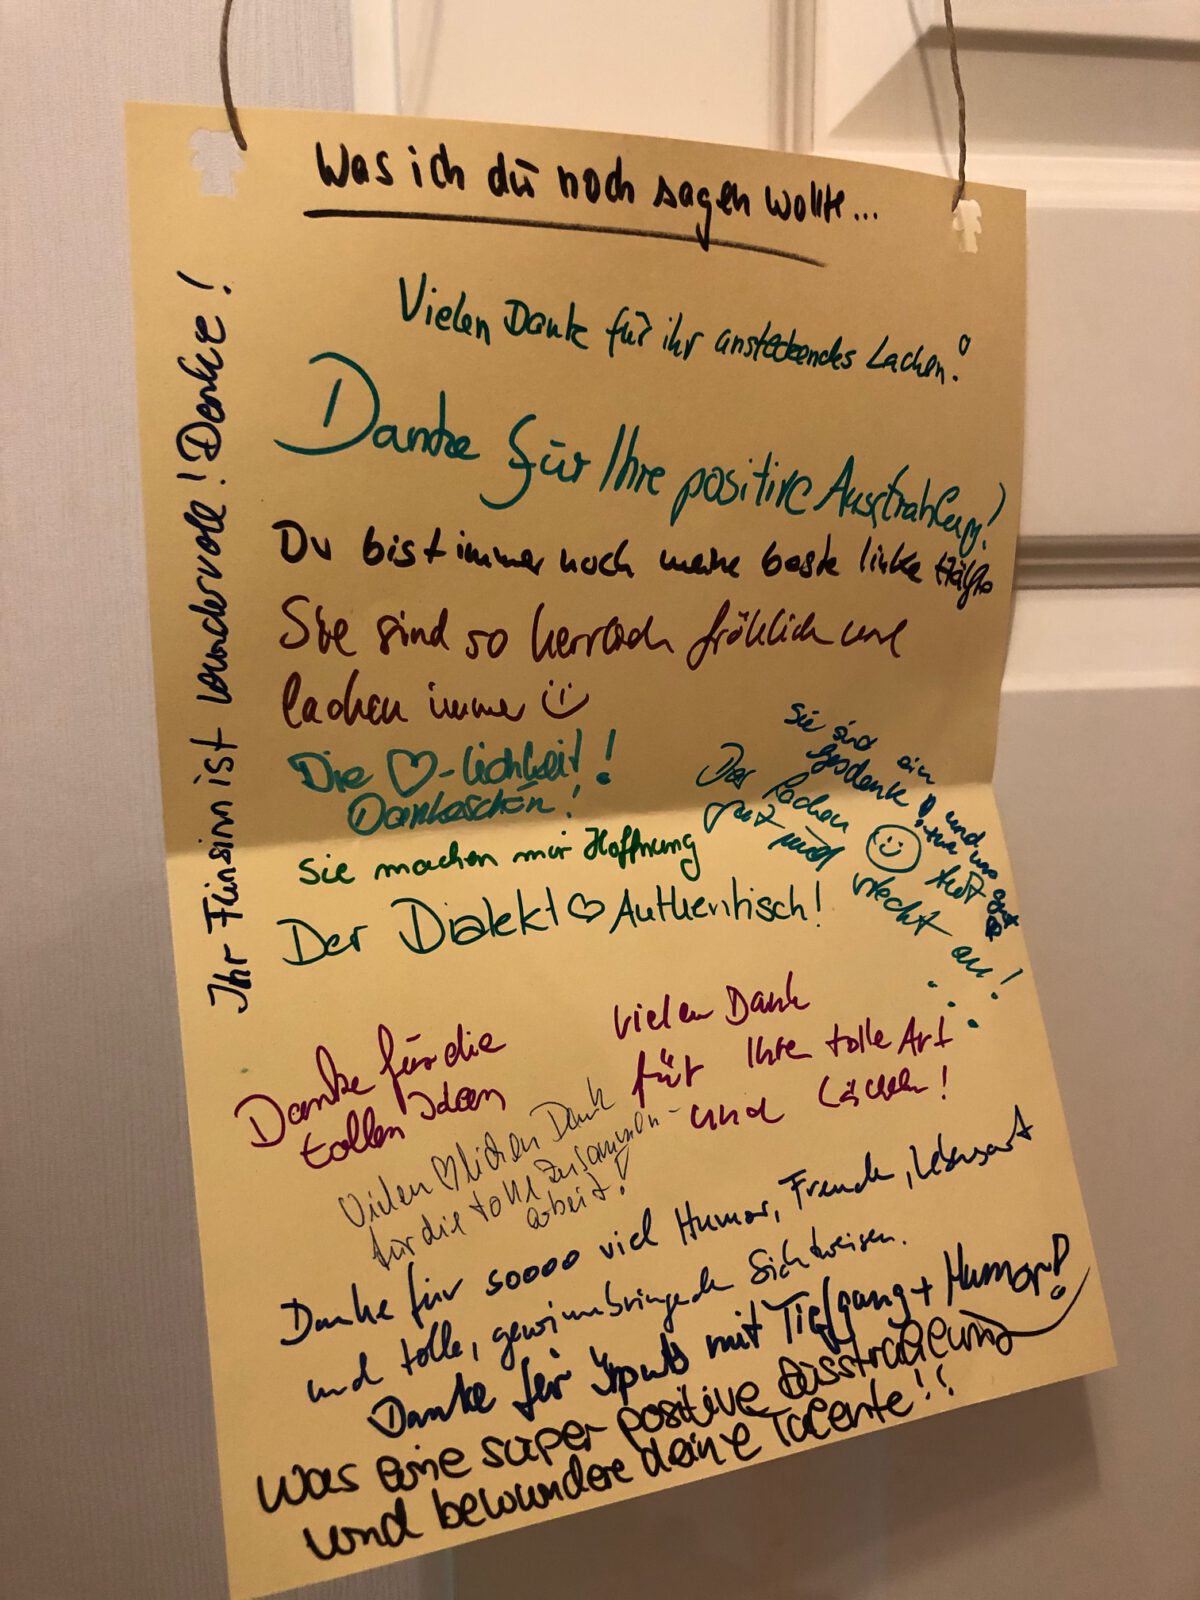 Was ich dir noch sagen wollte...
Vielen Dank für ihr ansteckendes Lachen!
Danke für Ihre positive Ausstrahlung!
Du bist immer noch meine beste linke Hälfte
Sie sind so herrlich fröhlich und
lachen immer
Die ♡-lichkeit!
Dankeschön!
Sie machen mir Hoffnung
Der Dialekt ♡ Authentisch!
Ihr Fünsinn ist wundervoll! Danke!
Sie sind ein
Geschenk und
tut uns gut
Der Lachen tut
gut und steckt an!
Danke für die
tollen Ideen
Vielen Dank
für Ihre tolle Art
und Lächeln!
Vielen ♡lichen Dank
für die tolle Zusammen-
arbeit!
Danke für soooo viel Humor, Freude, Lebensart
und tolle, gewinnbringende Sichtweisen.
Danke für Inputs mit Tiefgang + Humor!
Was eine super positive Ausstrahlung
und bewundere deine Talente!!